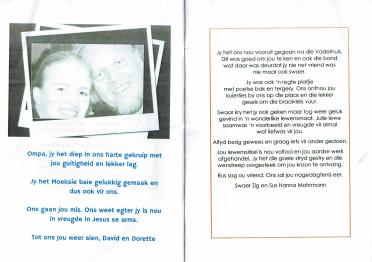 Ompa, jy het diep in ons harte gekruip met
jou guitigheid en lekker lag.
Jy het Hoeksie baie gelukkig gemaak en
dus ook vir ons.
Ons gaan jou mis. Ons weet egter jy is nou
in vreugde in Jesus se arms.
Tot ons jou weer sien, David en Dorette
Jy het ons nou vooruit gegaan na die Vaderhuis.
Dit was goed om jou te ken en ook die band
wat daar was deurdat jy nie net vriend was
nie maar ook swaer.
Jy was ook 'n regte platjie
met poetse bak en tergery. Ons onthou jou
kuiertjies by ons op die plaas en die lekker
gesels om die braaivleis vuur.
Swaer kry het jy ook geken maar tog weer geluk
gevind in 'n wonderlike lewensmaat. Julle lewe
saamwas 'n voorbeeld en vreugde vir almal
wat liefwas vir jou.
Altyd besig gewees en graag iets vir ander gedoen.
Jou lewenssirkel is nou voltooi en jou aardse werk
afgehandel. Jy het die goeie stryd gestry en die
wenstreep oorgesteek om jou kroon te ontvang.
Rus sag ou vriend. Ons sal jou nagedagtenis eer.
Swaer Zig en Sus Hanna Mahrmann